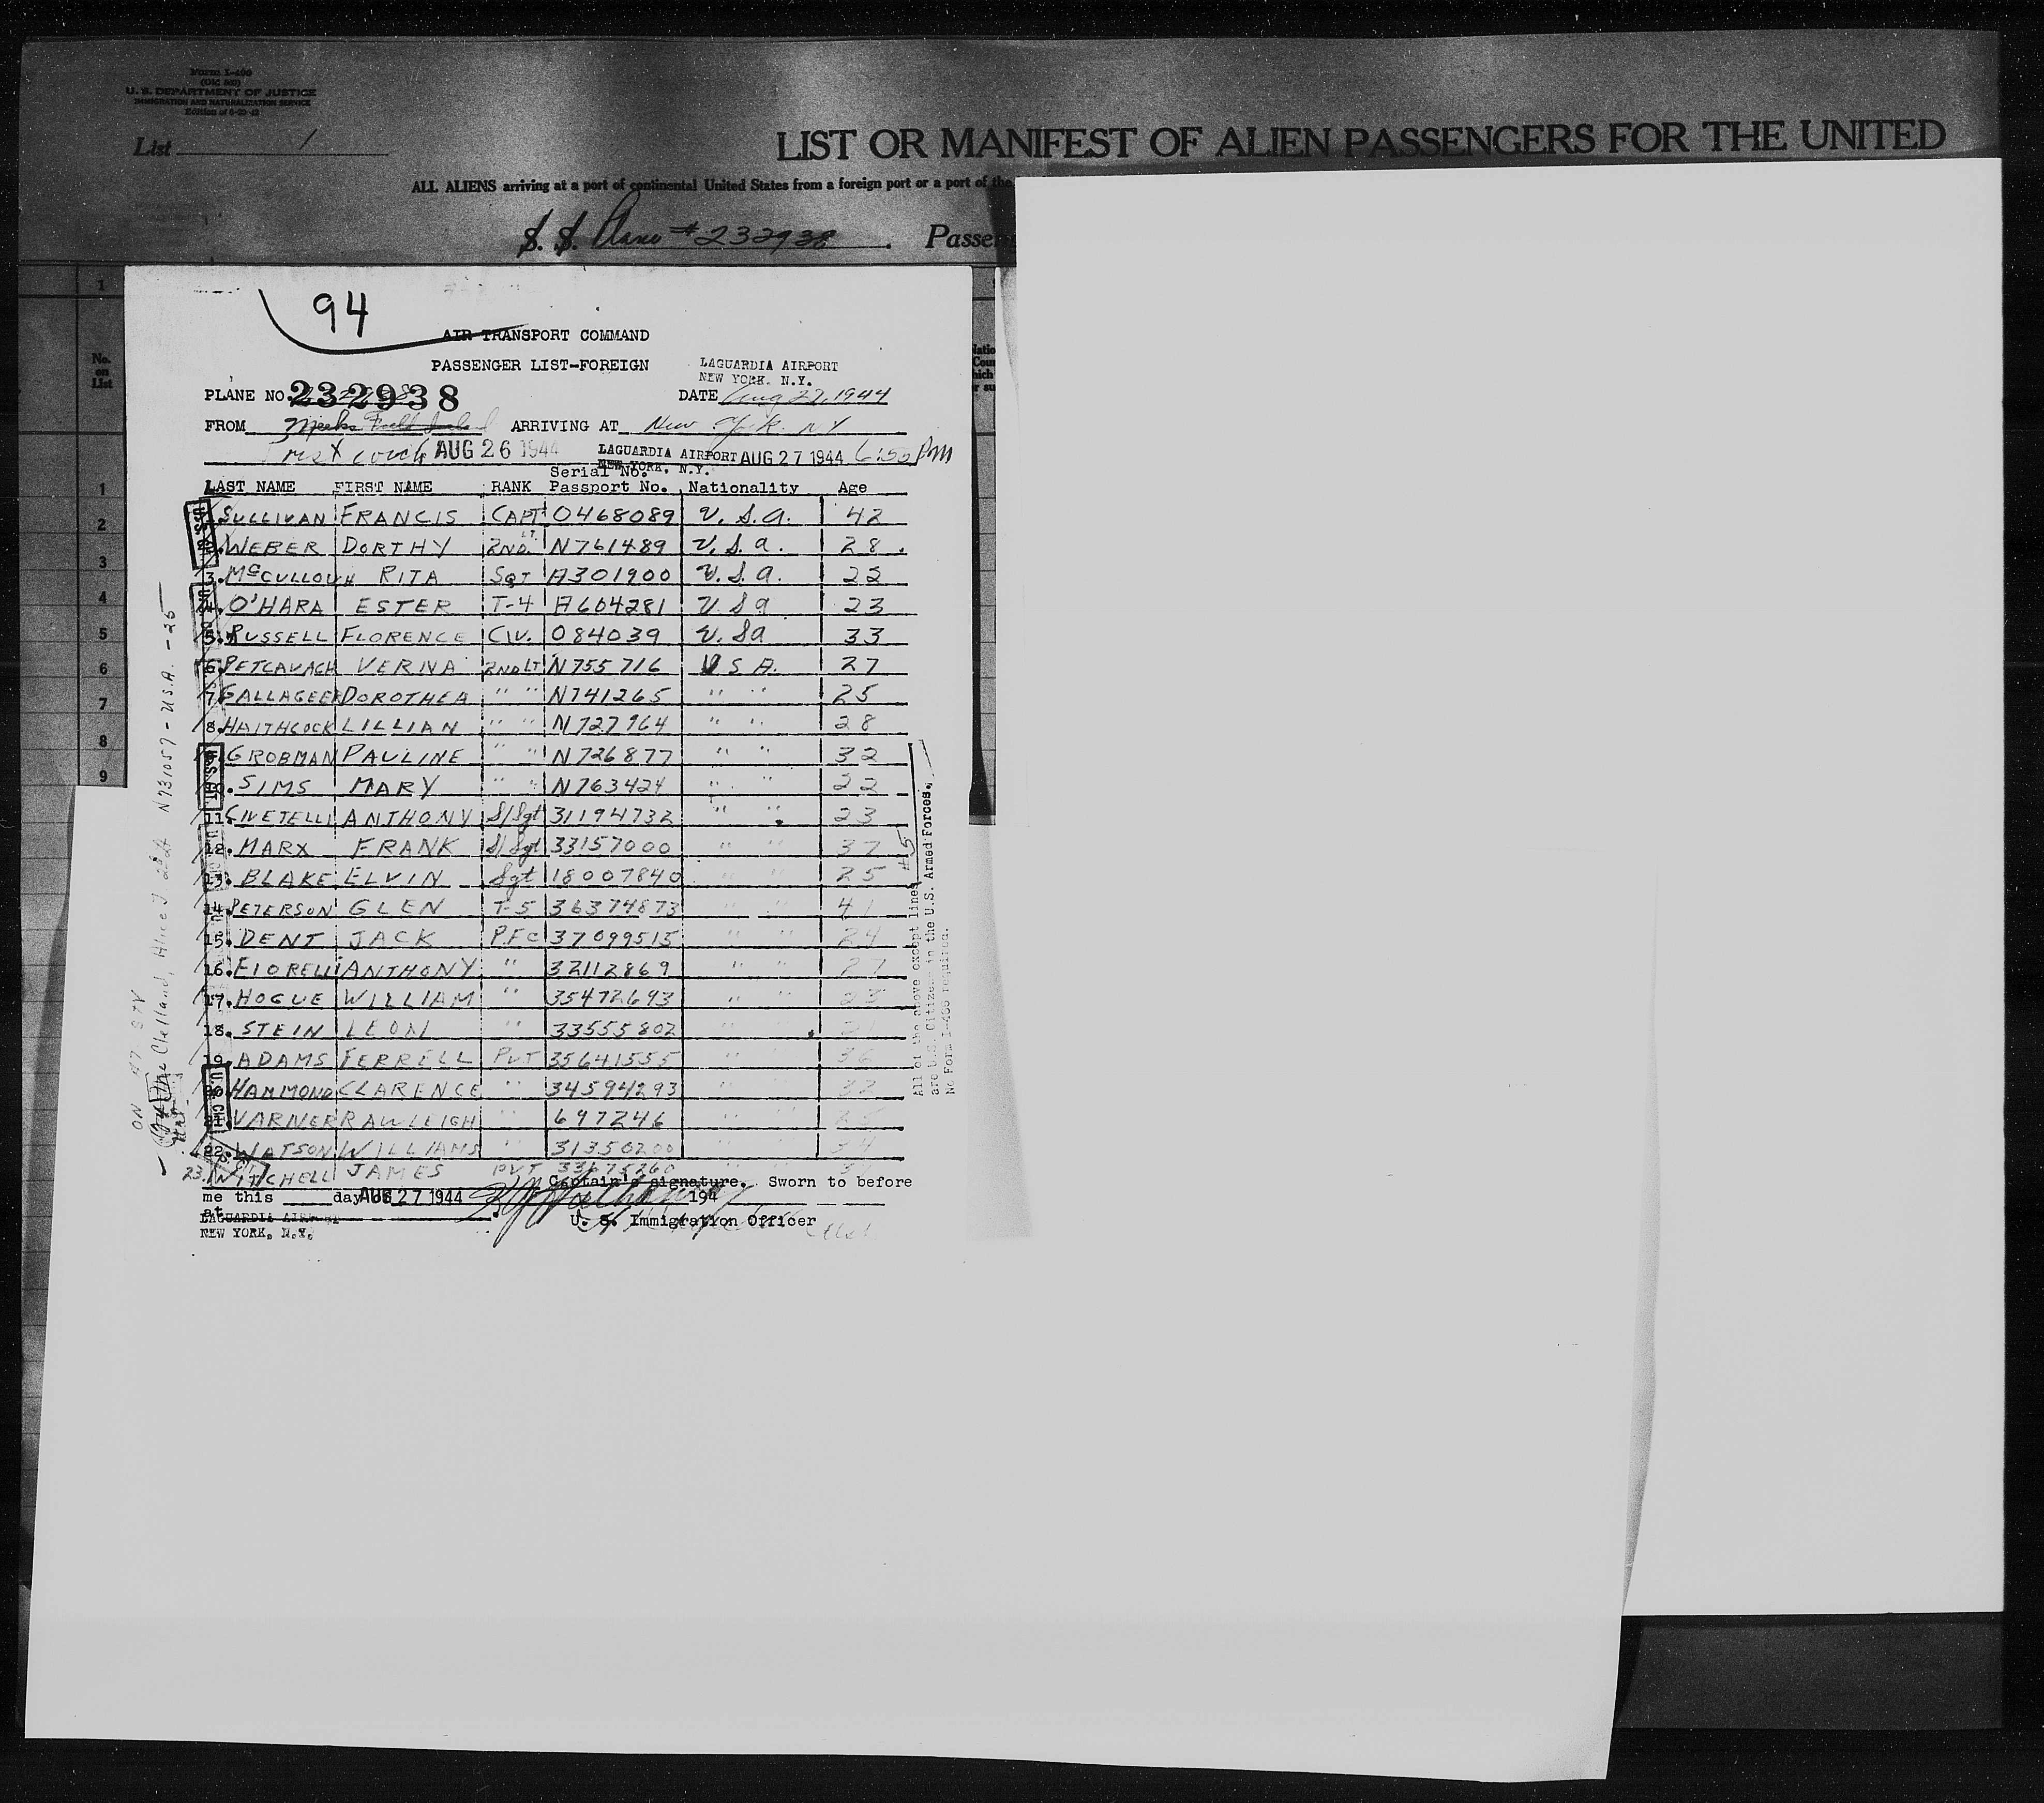 Form I-400
(Old 500)
U. S. DEPARTMENT OF JUSTICE
IMMIGRATION AND NATURALIZATION SERVICE
List 1
LIST OR MANIFEST OF ALIEN PASSENGERS FOR THE UNITED
ALL ALIENS arriving at a port of continental United States from a foreign port or a port of the
S. S. Plane #232938 . Passen
94
AIR TRANSPORT COMMAND
PASSENGER LIST-FOREIGN
LAGUARDIA AIRPORT
NEW YORK. N.Y.
PLANE NO. 232938 DATE Aug 27, 1944
FROM Meeks Field ARRIVING AT New York NY
AUG 26 1944 LAGUARDIA AIRPORT AUG 27 1944 6:50 PM
NEW YORK, N.Y.
Serial No.
LAST NAME FIRST NAME RANK Passport No. Nationality Age
SULLIVAN FRANCIS CAPT O468089 U.S.A. 42
WEBER DORTHY 2ND LT. N761489 U.S.A. 28.
3. McCULLOUH RITA SGT A301900 U.S.A. 22
O'HARA ESTER T-4 A604281 U S A 23
5. RUSSELL FLORENCE CIV. 084039 U. SA 33
6 PETCAVACH VERNA 2ND LT N755716 U S A. 27
7 GALLAGEER DOROTHEA " " N741265 " " 25
8. HAITHCOCK LILLIAN " " N727964 " " 28
GROBMAN PAULINE " " N726877 " " 32
SIMS MARY " " N763424 " " 22
11. CIVETELLI ANTHONY S/Sgt 31194732 " " 23
12. MARX FRANK S/Sgt 33157000 " " 37
13. BLAKE ELVIN Sgt 18007840 " " 25
14. PETERSON GLEN T-5 36374873 " " 41
15. DENT JACK P.F.C 37099515 " " 24
16. FIORELLI ANTHONY " 32112869 " " 27
17. HOGUE WILLIAM " 35472693 " " 23
18. STEIN LEON " 33555802
19. ADAMS FERRELL PVT 35641555 " " 36
HAMMOND CLARENCE " 34594293 " " 32
VARNER RAWLEIGH " 697246
22. WATSON WILLIAMS " 31350200 " " 34
23. MITCHELL JAMES PVT 33675260
Captain's signature. Sworn to before
me this day AUG 27 1944 194
at
LAGUARDIA AIRPORT
NEW YORK, N.Y.
U. S. Immigration Officer
All of the above except lines #5
are U.S. Citizens in the U.S. Armed Forces.
No Form I-466 required.
Clelland, Alice J 2nd Lt N731057 - U.S.A. - 25
No.
on
List
1
2
3
4
5
6
7
8
9